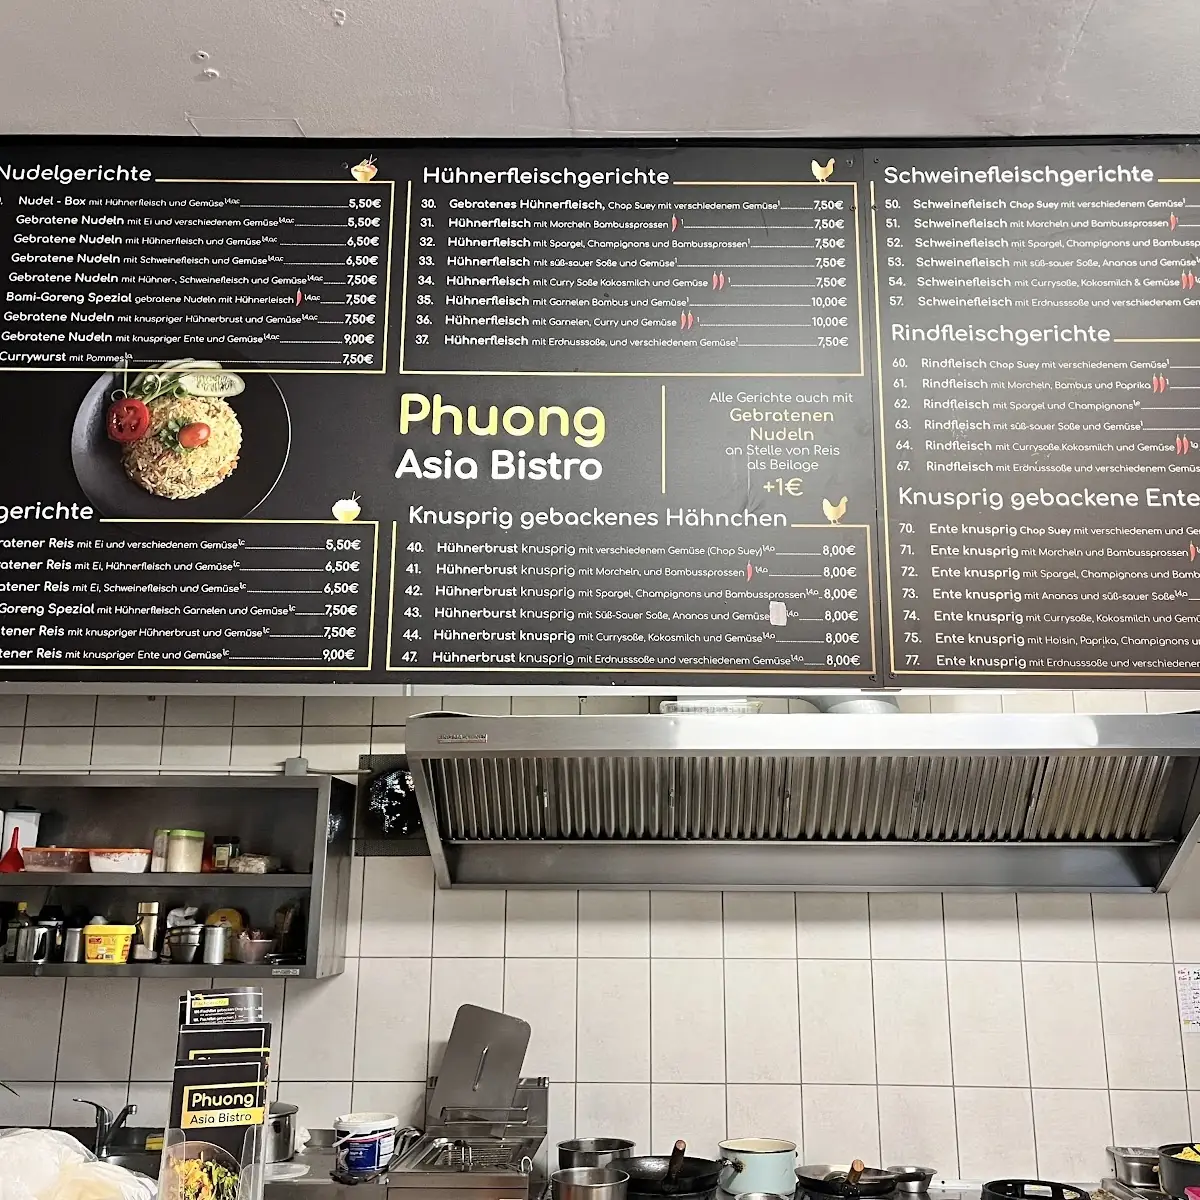 Nudelgerichte
Nudel - Box mit Hühnerfleisch und Gemüse 1,4,a,c 5,50€
Gebratene Nudeln mit Ei und verschiedenem Gemüse 1,4,a,c 5,50€
Gebratene Nudeln mit Hühnerfleisch und Gemüse 1,4,a,c 6,50€
Gebratene Nudeln mit Schweinefleisch und Gemüse 1,4,a,c 6,50€
Gebratene Nudeln mit Hühner-, Schweinefleisch und Gemüse 1,4,a,c 7,50€
Bami-Goreng Spezial gebratene Nudeln mit Hühnerleisch 1,4,a,c 7,50€
Gebratene Nudeln mit knuspriger Hühnerbrust und Gemüse 1,4,a,c 7,50€
Gebratene Nudeln mit knuspriger Ente und Gemüse 1,4,a,c 9,00€
Currywurst mit Pommes 7,50€
gerichte
ratener Reis mit Ei und verschiedenem Gemüse 1,c 5,50€
ratener Reis mit Ei, Hühnerfleisch und Gemüse 1,c 6,50€
atener Reis mit Ei, Schweinefleisch und Gemüse 1,c 6,50€
Goreng Spezial mit Hühnerfleisch Garnelen und Gemüse 1,c 7,50€
tener Reis mit knuspriger Hühnerbrust und Gemüse 1,c 7,50€
tener Reis mit knuspriger Ente und Gemüse 1,c 9,00€
Hühnerfleischgerichte
30. Gebratenes Hühnerfleisch, Chop Suey mit verschiedenem Gemüse 1 7,50€
31. Hühnerfleisch mit Morcheln Bambussprossen 1 7,50€
32. Hühnerfleisch mit Spargel, Champignons und Bambussprossen 1 7,50€
33. Hühnerfleisch mit süß-sauer Soße und Gemüse 1 7,50€
34. Hühnerfleisch mit Curry Soße Kokosmilch und Gemüse 1 7,50€
35. Hühnerfleisch mit Garnelen Bambus und Gemüse 1 10,00€
36. Hühnerfleisch mit Garnelen, Curry und Gemüse 1 10,00€
37. Hühnerfleisch mit Erdnusssoße, und verschiedenem Gemüse 1 7,50€
Phuong
Asia Bistro
Alle Gerichte auch mit
Gebratenen
Nudeln
an Stelle von Reis
als Beilage
+1€
Knusprig gebackenes Hähnchen
40. Hühnerbrust knusprig mit verschiedenem Gemüse (Chop Suey) 1,4,a 8,00€
41. Hühnerbrust knusprig mit Morcheln, und Bambussprossen 1,4,a 8,00€
42. Hühnerbrust knusprig mit Spargel, Champignons und Bambussprossen 1,4,a 8,00€
43. Hühnerburst knusprig mit Süß-Sauer Soße, Ananas und Gemüse 1,4,a 8,00€
44. Hühnerbrust knusprig mit Currysoße, Kokosmilch und Gemüse 1,4,a 8,00€
47. Hühnerbrust knusprig mit Erdnusssoße und verschiedenem Gemüse 1,4,a 8,00€
Schweinefleischgerichte
50. Schweinefleisch Chop Suey mit verschiedenem Gemüse 1
51. Schweinefleisch mit Morcheln und Bambussprossen
52. Schweinefleisch mit Spargel, Champignons und Bambussp
53. Schweinefleisch mit süß-sauer Soße, Ananas und Gemüse
54. Schweinefleisch mit Currysoße, Kokosmilch & Gemüse
57. Schweinefleisch mit Erdnusssoße und verschiedenem Gem
Rindfleischgerichte
60. Rindfleisch Chop Suey mit verschiedenem Gemüse 1
61. Rindfleisch mit Morcheln, Bambus und Paprika
62. Rindfleisch mit Spargel und Champignons
63. Rindfleisch mit süß-sauer Soße und Gemüse 1
64. Rindfleisch mit Currysoße,Kokosmilch und Gemüse
67. Rindfleisch mit Erdnusssoße und verschiedenem Gemüse
Knusprig gebackene Ente
70. Ente knusprig Chop Suey mit verschiedenem und Ge
71. Ente knusprig mit Morcheln und Bambussprossen
72. Ente knusprig mit Spargel, Champignons und Bamb
73. Ente knusprig mit Ananas und süß-saure Soße 1,4,a
74. Ente knusprig mit Currysoße, Kokosmilch und Gemü
75. Ente knusprig mit Hoisin, Paprika, Champignons u
77. Ente knusprig mit Erdnusssoße und verschiedenem
Phuong
Asia Bistro